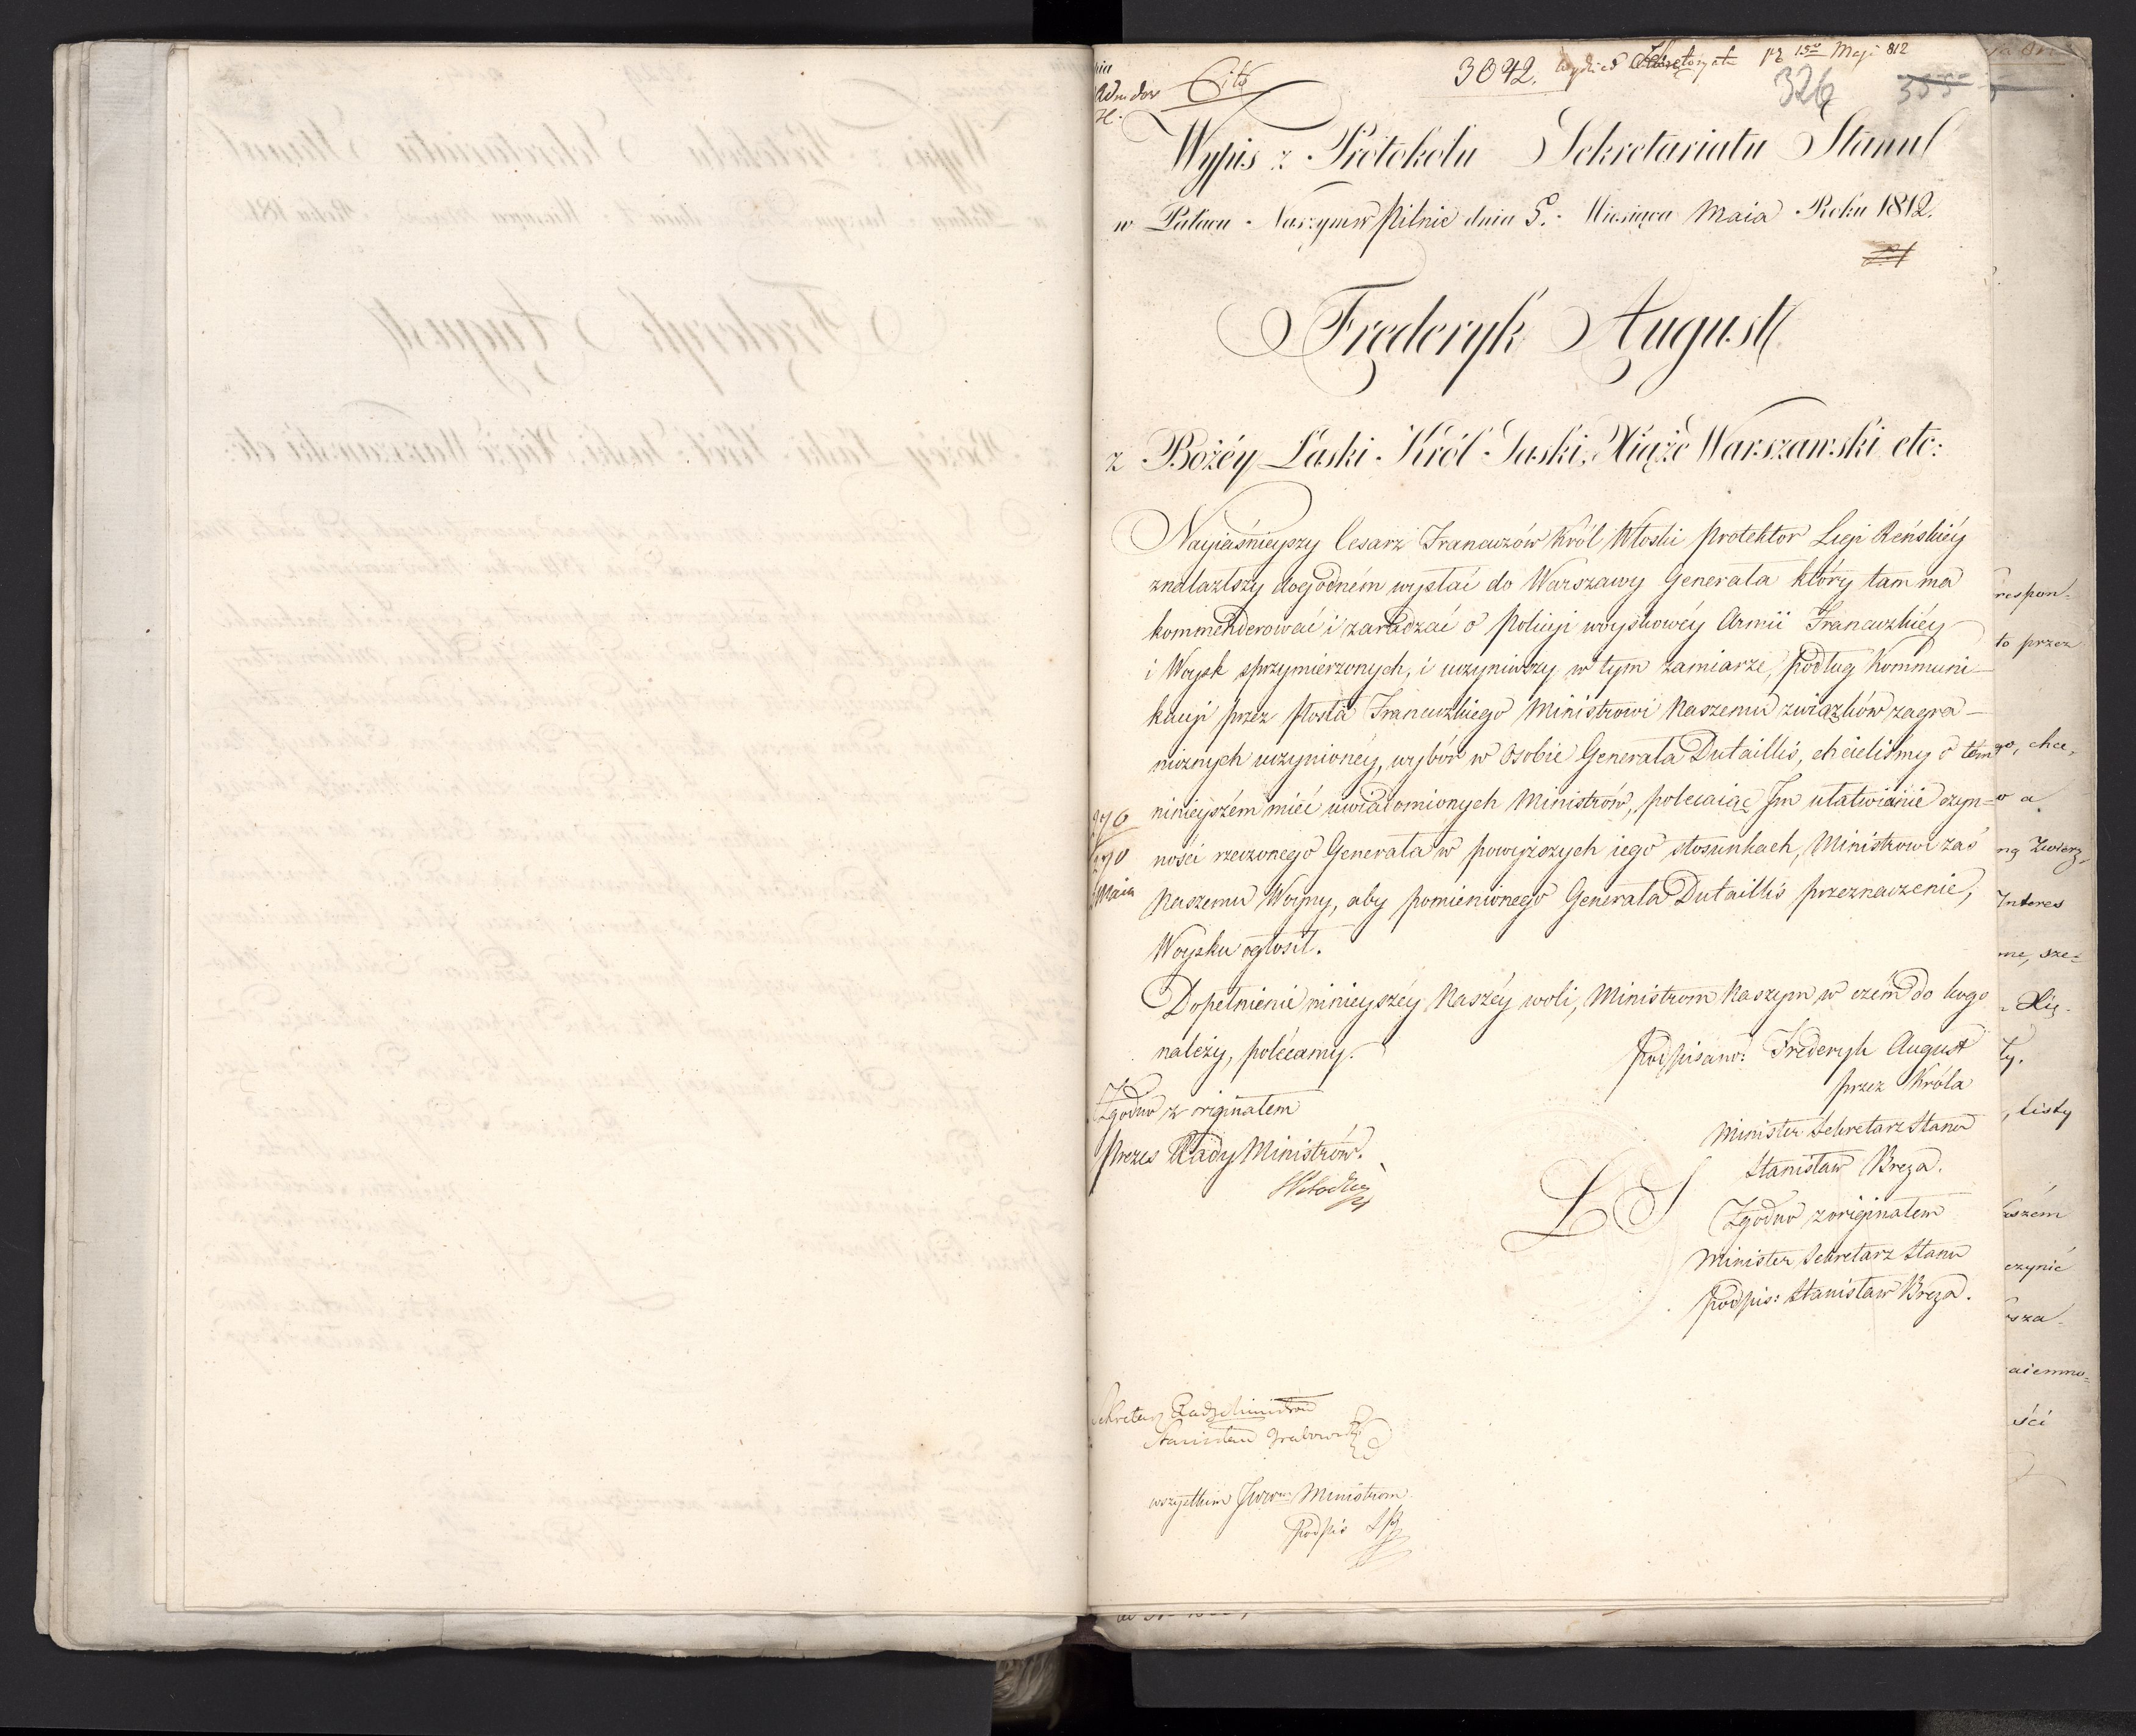 Cito
3642.
15go Maji 812
326
355
Wypis z Protokolu Sekretariatu Stanu
w Pałacu Naszym w Pilnic dnia 5. Miesiąca Maia Roku 1812.
Frederyk August
z Bożéy Łaski Król Saski, Xiąże Warszawski etc:
Nayiaśnieyszy Cesarz Francuzów Król Włoski Protektor Ligi Reńskiéy
znalazłszy dogodném wysłać do Warszawy Generała który tam ma
kommenderować i zaradzać o Policyi woyskowéy Armii Francuzkiéy
i Woysk sprzymierzonych, i uczyniwszy w tym zamiarze, podług Kommuni-
kacyi przez Posła Francuzkiego Ministrowi Naszemu związków zagra-
nicznych uczynionéy, wybór w Osobie Generała Dutaillis, chcieliśmy o tém
ninieyszém mieć uwiadomionych Ministrów, polecaiąc Im ułatwianie czyn-
ności rzeczonego Generała w powyższych iego stosunkach, Ministrowi zaś
Naszemu Woyny, aby pomienionego Generała Dutaillis przeznaczenie,
Woysku ogłosił.
Dopełnienie ninieyszéy Naszéy woli, Ministrom Naszym w czém do kogo
należy, polecamy.
Podpisano: Frederyk August
przez Króla
Minister Sekretarz Stanu
Stanisław Breza.
LS
Zgodno z originałem
Minister Sekretarz Stanu
podpis: Stanisław Breza.
Zgodno z originałem
Prezes Rady Ministrów.
Sekretarz Rady Ministrów
Stanisław Grabowski
wszystkim JWW Ministrom
Podpis
Maia
respon-
to przez
go, chce,
o a
ng Zwierz,
Interes
me, sze-
Xię-
ty.
, listy
aszém
czynić
sza-
aiemno-
ści